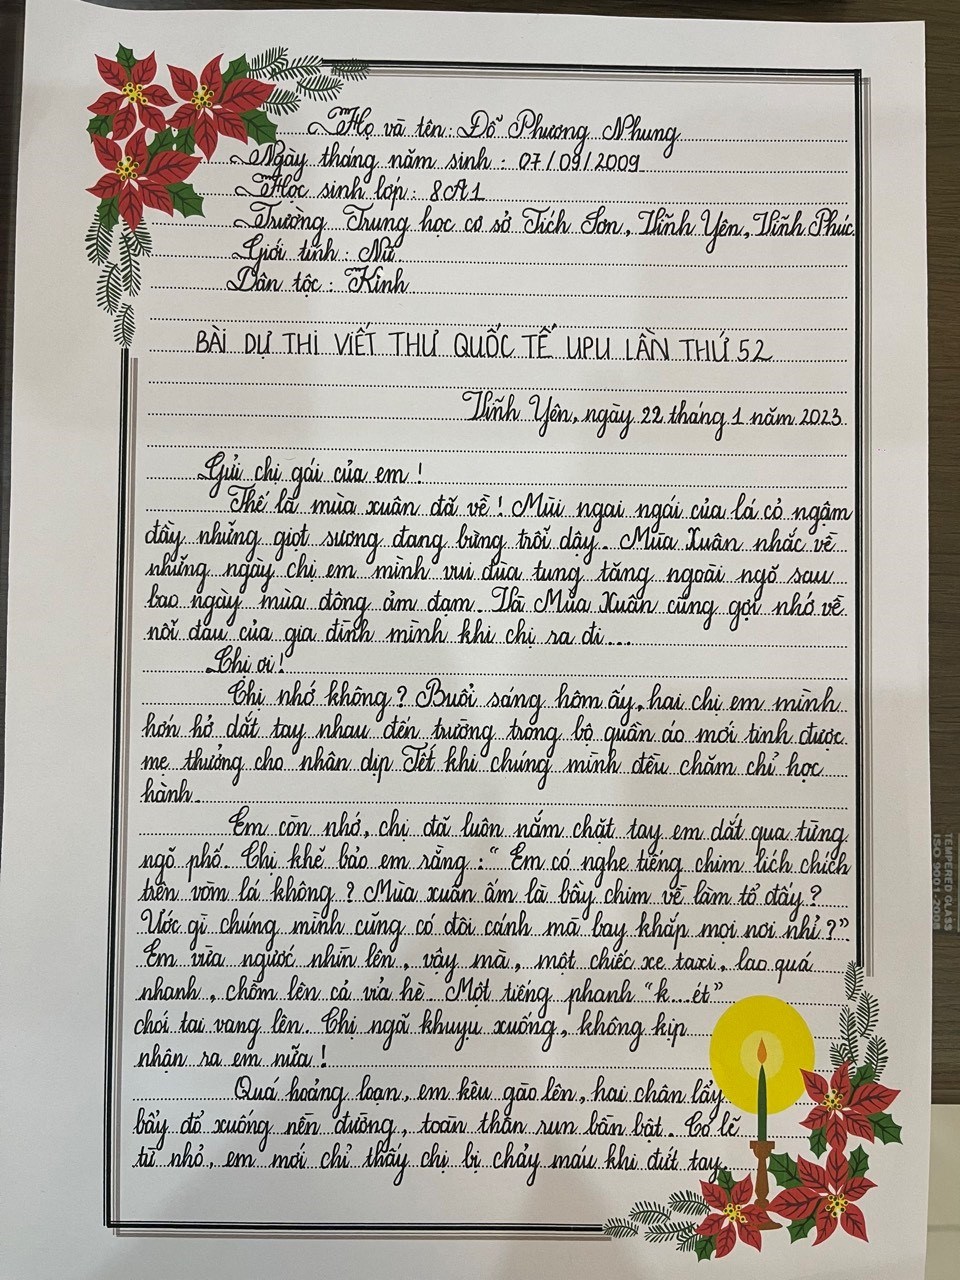 Họ và tên: Đỗ Phương Nhung
Ngày tháng năm sinh: 07/09/2009
Học sinh lớp: 8A1
Trường Trung học cơ sở Tích Sơn, Vĩnh Yên, Vĩnh Phúc
Giới tính: Nữ
Dân tộc: Kinh
BÀI DỰ THI VIẾT THƯ QUỐC TẾ UPU LẦN THỨ 52
Vĩnh Yên, ngày 22 tháng 1 năm 2023
Gửi chị gái của em!
Thế là mùa xuân đã về! Mùi ngai ngái của lá cỏ ngậm
đầy những giọt sương đang bừng trỗi dậy. Mùa Xuân nhắc về
những ngày chị em mình vui đùa tung tăng ngoài ngõ sau
bao ngày mùa đông ảm đạm. Và Mùa Xuân cũng gợi nhớ về
nỗi đau của gia đình mình khi chị ra đi....
Chị ơi!
Chị nhớ không? Buổi sáng hôm ấy, hai chị em mình
hớn hở dắt tay nhau đến trường trong bộ quần áo mới tinh được
mẹ thưởng cho nhân dịp Tết khi chúng mình đều chăm chỉ học
hành.
Em còn nhớ, chị đã luôn nắm chặt tay em dắt qua từng
ngõ phố. Chị khẽ bảo em rằng: "Em có nghe tiếng chim lích chích
trên vòm lá không? Mùa xuân ấm là bầy chim về làm tổ đấy?
Ước gì chúng mình cũng có đôi cánh mà bay khắp mọi nơi nhỉ?"
Em vừa ngước nhìn lên, vậy mà, một chiếc xe taxi, lao quá
nhanh, chồm lên cả vỉa hè. Một tiếng phanh "k...ét"
chói tai vang lên. Chị ngã khuỵu xuống, không kịp
nhận ra em nữa!
Quá hoảng loạn, em kêu gào lên, hai chân lẩy
bẩy đổ xuống nền đường, toàn thân run bần bật. Có lẽ
từ nhỏ, em mới chỉ thấy chị bị chảy máu khi đứt tay
TEMPERED GLASS
ISO 9001-2008